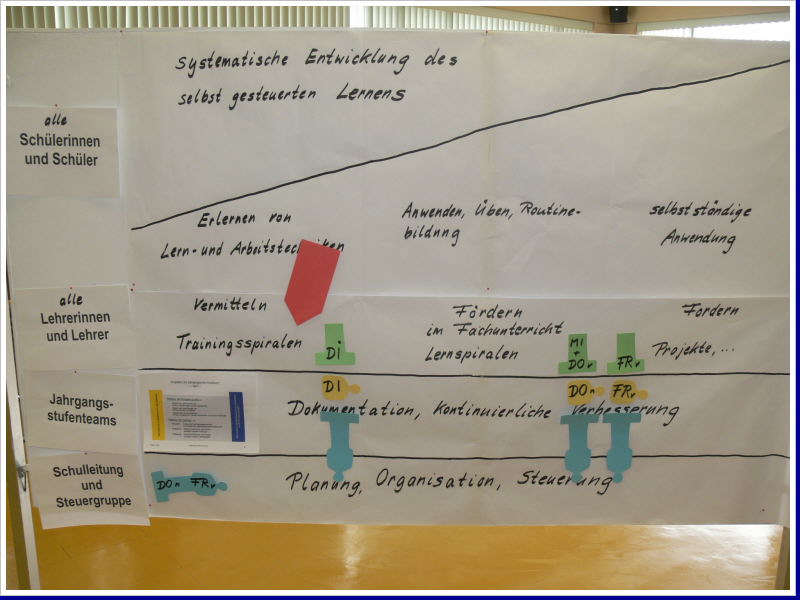 Systematische Entwicklung des
selbst gesteuerten Lernens
alle
Schülerinnen
und Schüler
Erlernen von
Lern- und Arbeitstechniken
Anwenden, Üben, Routine-
bildung
selbstständige
Anwendung
alle
Lehrerinnen
und Lehrer
Vermitteln
Trainingsspiralen
Di
Fördern
im Fachunterricht
Lernspiralen
MI
+
DOv
FRv
Fordern
Projekte, ...
Jahrgangs-
stufenteams
DI
Dokumentation, Kontinuierliche Verbesserung
DOn
FRv
Schulleitung
und
Steuergruppe
DOn FRv
Planung, Organisation, Steuerung